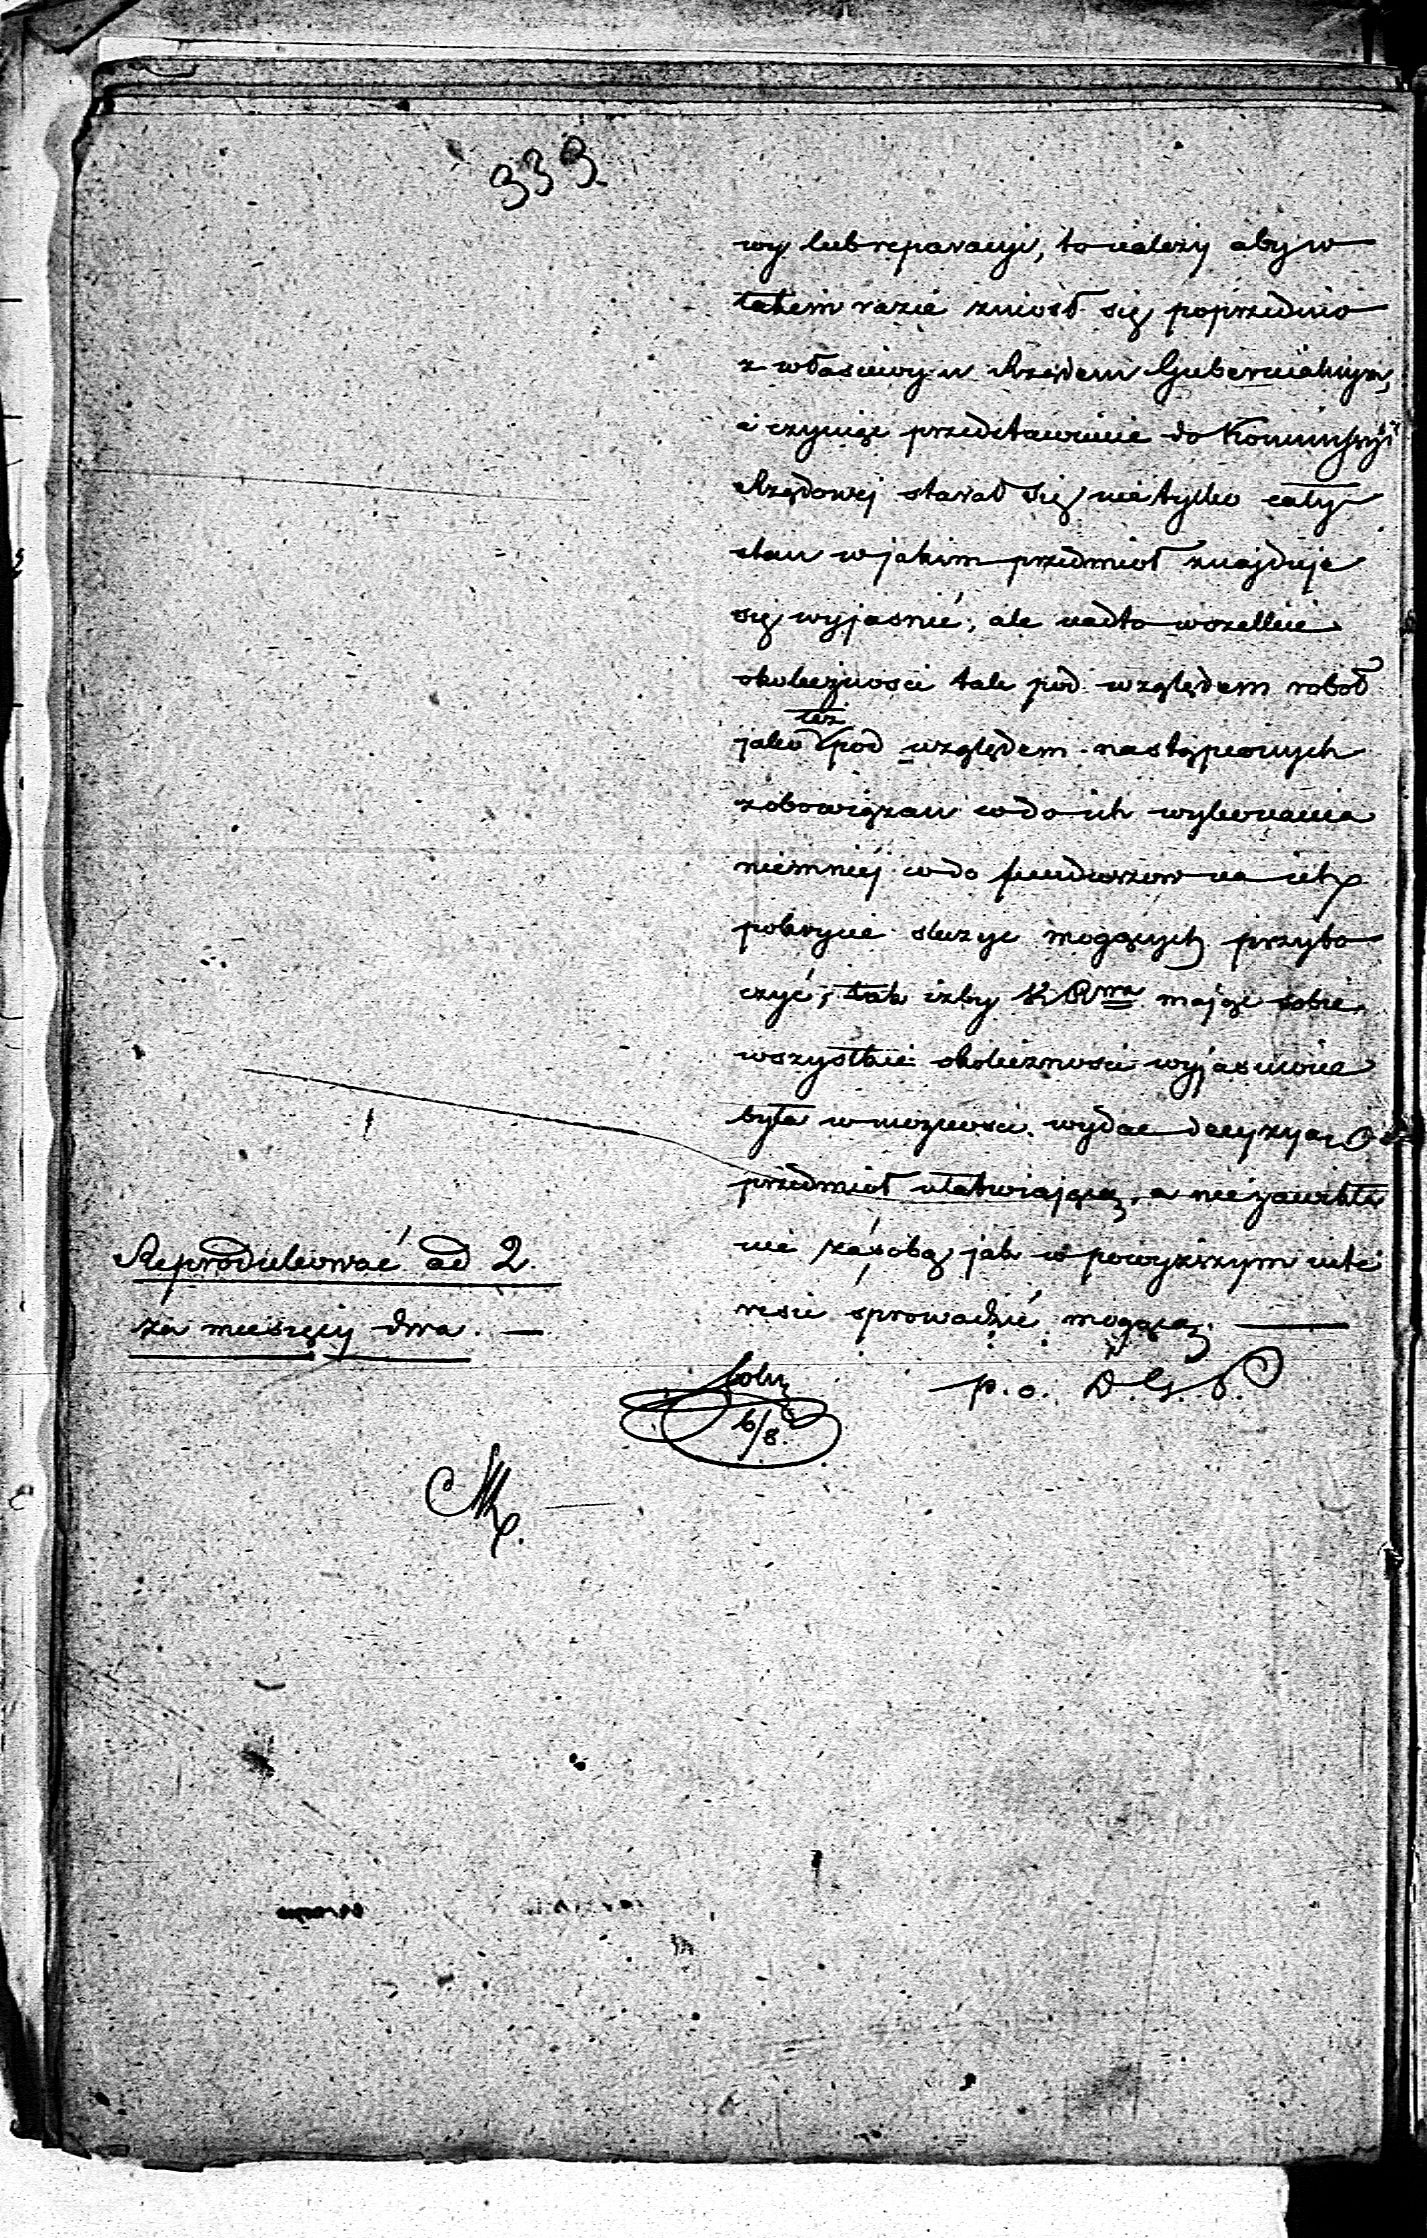 333
wy lub reparacyi, to należy aby w
takim razie zniosł się poprzednio
z właściwym Rządem Gubernialnym,
a czyniąc przedstawienie do Kommissyi
Rządowej starał się nie tylko cały
stan w jakim przedmiot znajduje
się wyjaśnić, ale nadto wszelkie
okoliczności tak pod względem robot
jako też pod względem nastąpionych
zobowiązan co do ich wykonania
niemniéj co do funduszow na ich
pokrycie służyc mogących przyto
czyć, tak izby K R mając sobie
wszystkie okoliczności wyjaśnione
była w możności wydac decyzyą
przedmiot ułatwiającą, a nie zawikła
nie zasobą jak w powyższym inte
resie sprowadzić mogącą. —
Reprodukować ad 2.
za miesięcy dwa. —
p. o. D. G.
6/8.